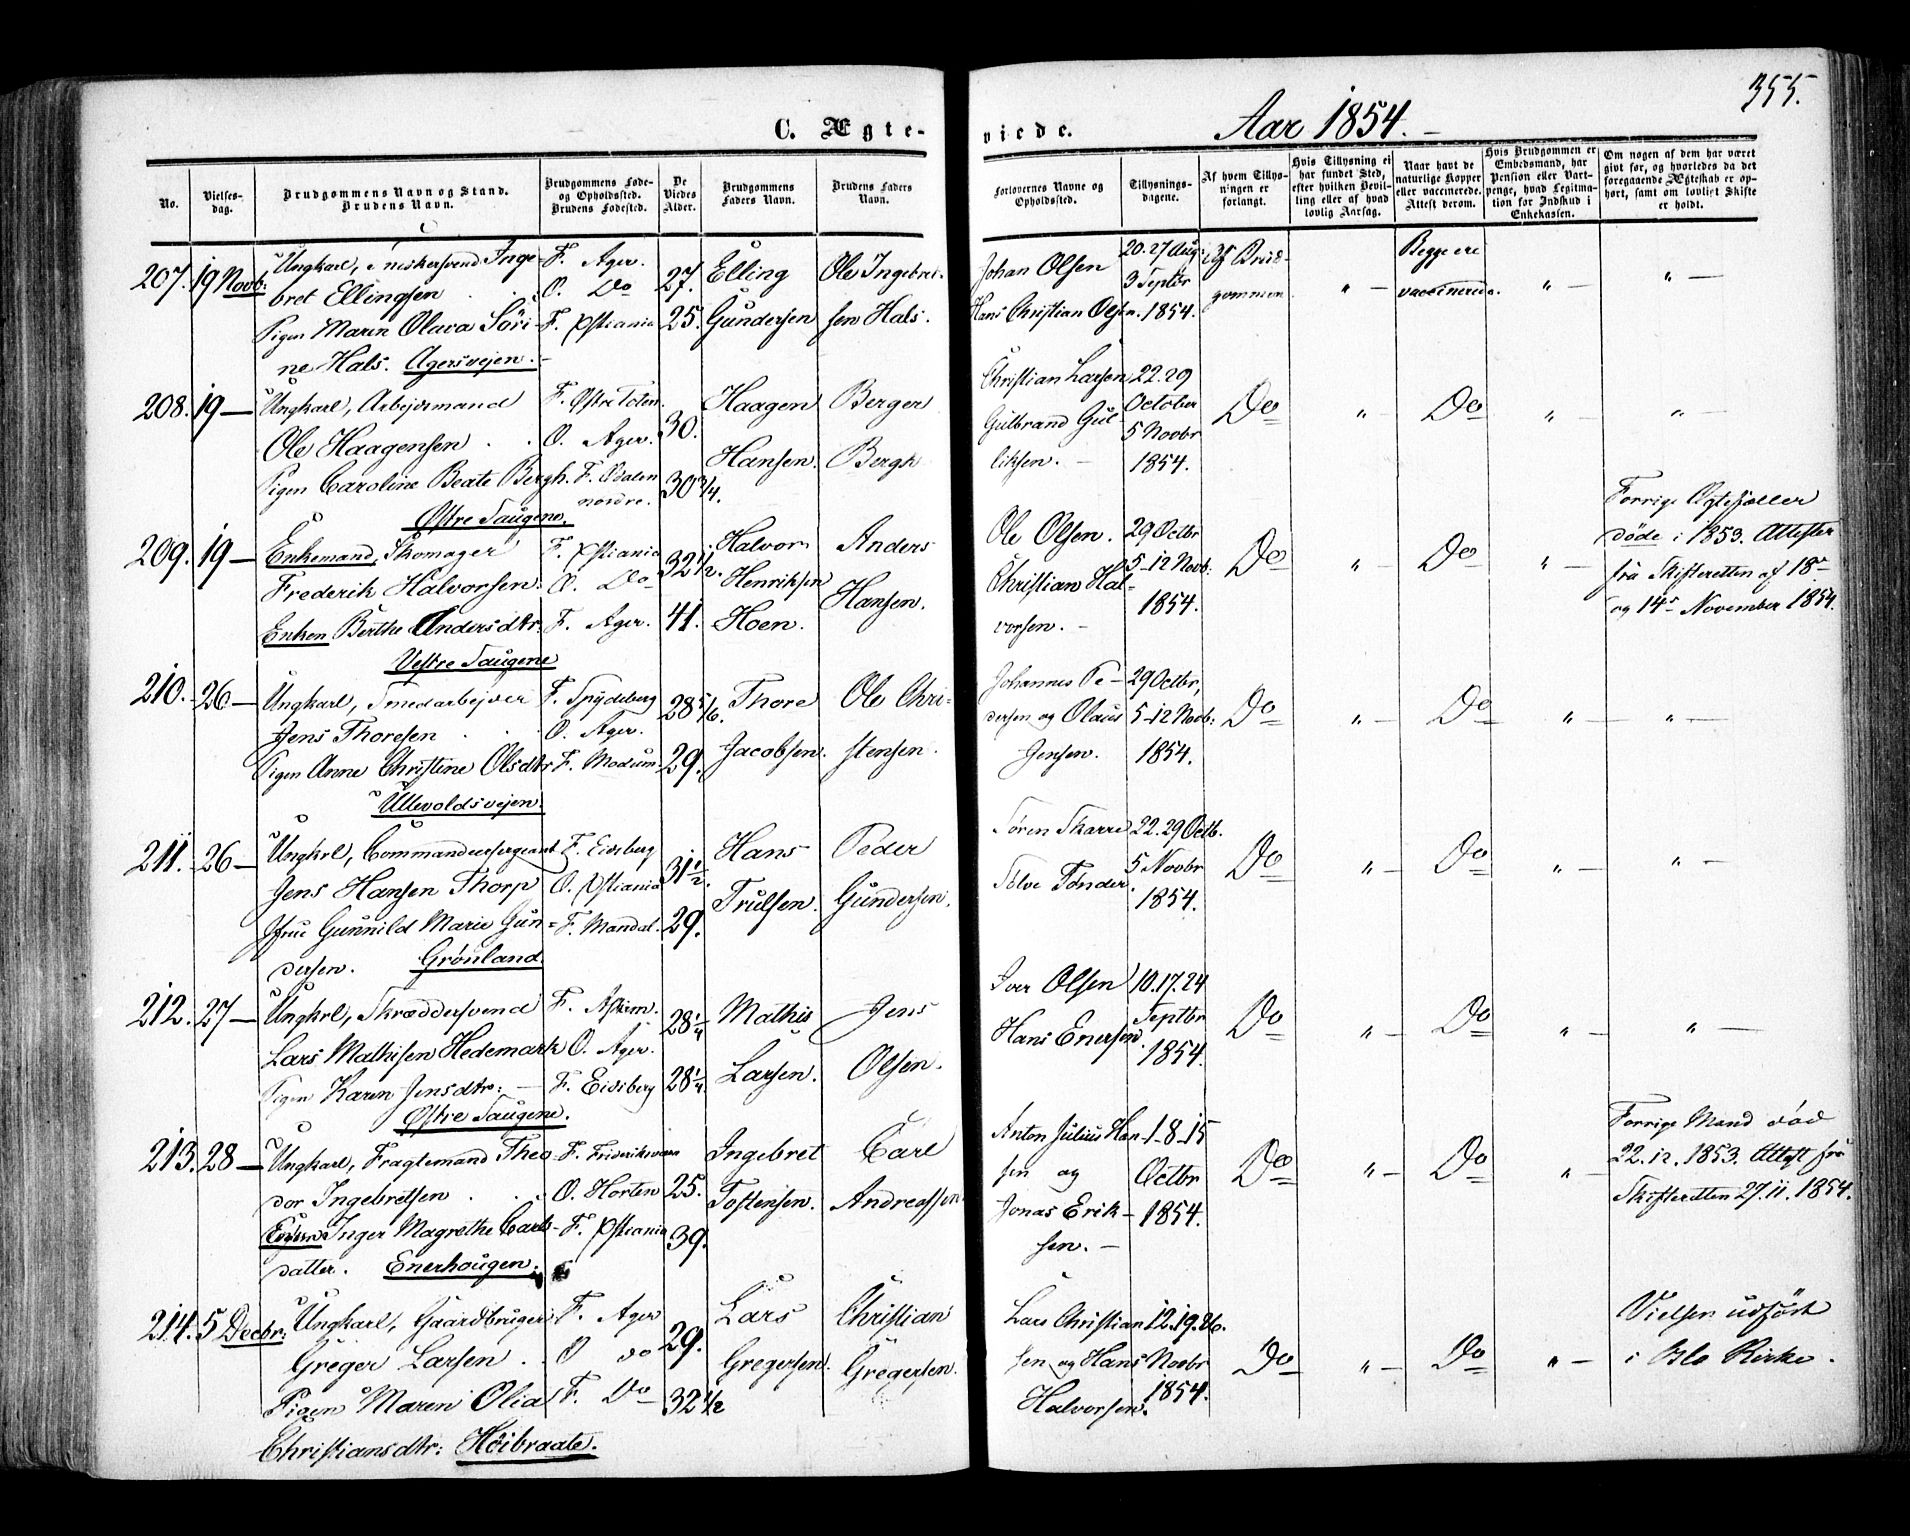 355.
C. Ægte-
viede.
Aar 1854.
No.
Vielses-
dag.
Brudgommens Navn og Stand.
Brudens Navn.
Brudgommens Føde-
og Opholdssted.
Brudens Fødested.
De
Viedes
Alder.
Brudgommens
Faders Navn.
Brudens Faders
Navn.
Forlovernes Navne og
Opholdssted.
Tillysnings-
dagene.
Af hvem Tillys-
ningen er
forlangt.
Hvis Tillysning ei
har fundet Sted,
efter hvilken Bevil-
ling eller af hvad
lovlig Aarsag.
Naar havt de
naturlige Kopper
eller vaccinerede.
Attest derom.
Hvis Brudgommen er
Embedsmand, har
Pension eller Vart-
penge, hvad Legitima-
tion for Indskud i
Enkekassen.
Om nogen af dem har været
givt før, og hvorledes da det
foregaaende Ægteskab er op-
hørt, samt om lovligt Skifte
er holdt.
207. 19 Novb: Ungkarl, Snekersvend Inge- F. Ager. 27. Elling Ole Ingebret- Johan Olsen 20. 27 Aug: Af Brud- " - Begge ere " - " -
bret Ellingsen O. Do 3 Septbr gommen vaccinerede.
Pigen Maren Olava Søri- F. Xstiania 25. Gundersen sen Hals. Hans Christian Olsen. 1854.
ne Hals. Agersvejen.
208. 19 - Ungkarl, Arbejdsmand F. Østre Toten. 30. Haagen Berger Christian Larsen 22. 29 Do " - Do " - " -
Ole Haagensen O. Ager. Gulbrand Gul- October
5 Novbr
Pigen Caroline Beate Bergh. F. Odalen 30 3/4. Hansen. Bergh liksen. 1854.
nordre.
Østre Saugene.
209. 19 - Enkemand, Skomager F. Xstiania 32 1/2. Halvor Anders Ole Olsen. 29 Octbr Do " - Do " - Forrige Ægtefæller
døde i 1853. Attester
Frederik Halvorsen. O. Do Henriksen Hansen. Christian Hal- 5-12 Novb: fra Skifteretten af 18de
Enken Berthe Andersdtr. F. Ager. 41. Hoen. vorsen. 1854. og 14de November 1854.
Vestre Saugene
210. 26 - Ungkarl, Smedarbejder F. Spydeberg 28 5/6. Thore Ole Chri- Johannes Pe- 29 Octbr, Do " - Do " - " -
Jens Thoresen O. Ager. dersen og Olaus 5-12 Novb:
Pigen Anne Christine Olsdtr F. Modum. 29. Jacobsen. stensen. Jensen. 1854.
Ullevoldsvejen.
211. 26 - Ungkrl, Commandersergeant F. Eidsberg 31 1/2. Hans Peder Søren Skarre 22. 29 Octb. Do " - Do " - " -
Jens Hansen Thorp O. Xstiania Trulsen. Gundersen. Tølve Tønder. 5 Novbr
Jfru Gunnild Marie Gun- F. Mandal. 29. 1854.
dersen. Grønland.
212. 27 - Ungkrl, Skræddersvend F. Askim. 28 1/4 Mathis Jens Iver Olsen 10. 17. 24 Do " - Do " - " -
Lars Mathisen Hedemark O. Ager. Hans Enersen. Septbr
Pigen Karen Jensdtr: F. Eidsberg 28 1/4. Larsen. Olsen. 1854.
Østre Saugene.
213. 28 - Ungkarl, Fragtemand Theo- F. Frideriksværn 25. Ingebret Carl Anton Julius Han- 1-8-15 Do " - Do " - Forrige Mand død
22. 12. 1853. Attest fra
dor Ingebretsen O. Horten Tostensen. Andreassen. sen og Octbr Skifteretten 27. 11. 1854.
Enken Inger Magrethe Carls- F. Xstiania 39. Jonas Erik- 1854.
datter. Enerhougen. sen.
214. 5 Decbr: Ungkarl, Gaardbruger F. Ager 29. Lars Christian Lars Christian- 12. 19. 26. Do " - Do " - Vielsen udført
Greger Larsen O do Gregersen. Gregersen. sen og Hans Novbr i Oslo Kirke.
Pigen Maren Olia F. Do 32 1/2 Halvorsen. 1854.
Christiansdtr: Høibraate.